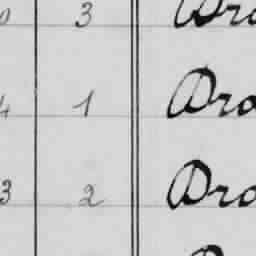 3 Dro
4 1 Dro
3 2 Dro